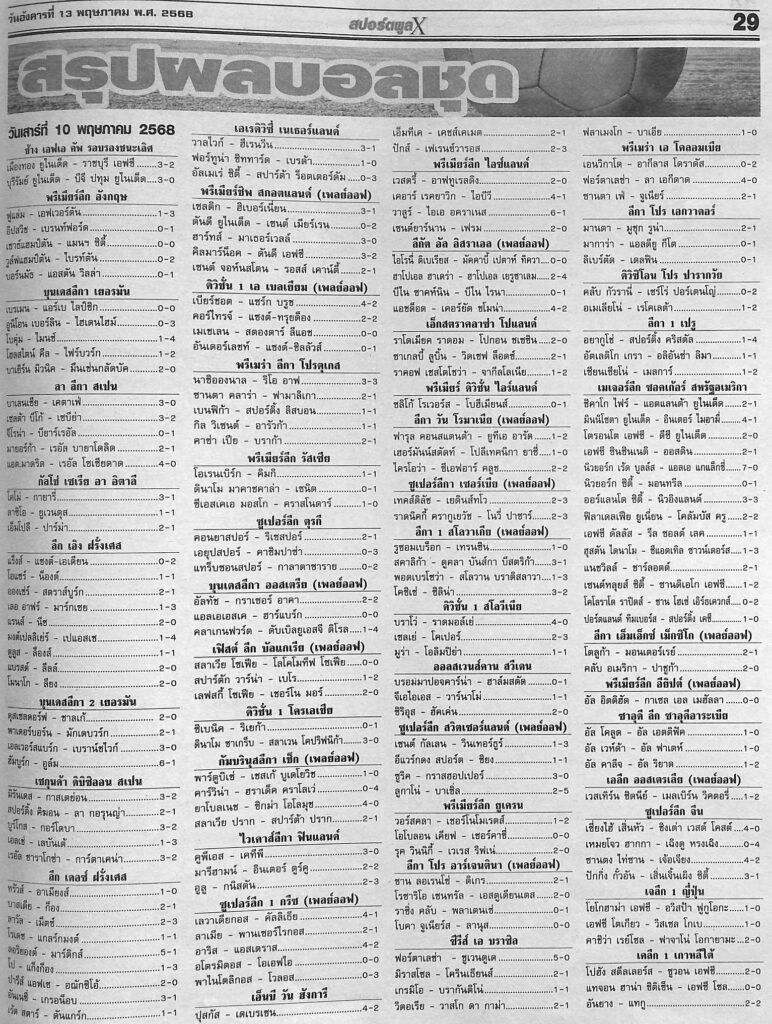 วันอังคารที่ 13 พฤษภาคม พ.ศ. 2568
สปอร์ตพูลX
29
สรุปผลบอลชุด
วันเสาร์ที่ 10 พฤษภาคม 2568
ช้าง เอฟเอ คัพ รอบรองชนะเลิศ
เมืองทอง ยูไนเต็ด - ราชบุรี เอฟซี...3-2
บุรีรัมย์ ยูไนเต็ด - บีจี ปทุม ยูไนเต็ด...3-0
พรีเมียร์ลีก อังกฤษ
ฟูแล่ม - เอฟเวอร์ตัน...1-3
อิปสวิช - เบรนท์ฟอร์ด...0-1
เซาธ์แฮมป์ตัน - แมนฯ ซิตี้...0-0
วูล์ฟแฮมป์ตัน - ไบรท์ตัน...0-2
บอร์นมัธ - แอสตัน วิลล่า...0-1
บุนเดสลีกา เยอรมัน
เบรเมน - แอร์เบ ไลป์ซิก...0-0
ยูนิโอน เบอร์ลิน - ไฮเดนไฮม์...0-3
โบคุ่ม - ไมนซ์...1-4
โฮลสไตน์ คีล - ไฟร์บวร์ก...1-2
บาเยิร์น มิวนิค - มึนเช่นกลัดบัค...2-0
ลา ลีกา สเปน
บาเลนเซีย - เคตาเฟ่...3-0
เซลต้า บีโก้ - เซบีย่า...3-2
จิโรน่า - บียาร์เรอัล...0-1
มายอร์ก้า - เรอัล บายาโดลิด...2-1
แอต.มาดริด - เรอัล โซเซียดาด...4-0
กัลโช่ เซเรีย อา อิตาลี
โคโม่ - กายารี่...3-1
ลาซิโอ - ยูเวนตุส...1-1
เอ็มโปลี - ปาร์ม่า...2-1
ลีก เอิง ฝรั่งเศส
แร็งส์ - แซงต์-เอเตียน...0-2
โอแซร์ - น็องต์...1-1
อองเช่ร์ - สตราส์บูร์ก...2-1
เลอ อาฟร์ - มาร์กเซย...1-3
แรนส์ - นีซ...2-0
มงต์เปลลิเย่ร์ - เปแอสเช...1-4
ตูลูส - ล็องส์...1-1
แบรสต์ - ลีลล์...2-0
โมนาโก - ลียง...2-0
บุนเดสลีกา 2 เยอรมัน
ดุสเซลดอร์ฟ - ชาลเก้...2-0
พาเดอร์บอร์น - มักเดบวร์ก...2-1
เอลเวอร์สแบร์ก - เบราน์ชไวก์...3-0
ฮัมบูร์ก - อูล์ม...6-1
เซกุนด้า ดิบิซิออน สเปน
มิรันเดส - กาสเตยอน...3-2
สปอร์ติ้ง คิฆอน - ลา กอรุนญ่า...2-1
บูร์โกส - กอร์โดบา...3-2
เอลเช่ - เลบันเต้...1-3
เรอัล ซาราโกซ่า - การ์ตาเคน่า...3-2
ลีก เดอซ์ ฝรั่งเศส
ทรัวส์ - อาเมียงส์...1-0
บาสเตีย - ก็อง...2-1
ลาวัล - เม็ตซ์...2-3
โรเดซ - แกลร์กมงต์...1-1
ลอริยองต์ - มาร์ติกส์...5-1
โป - แก็งก็อง...1-3
ปารีส์ แอฟเซ - อณักซิโอ้...2-0
อันเนซี่ - เกรอน็อบ...3-1
เร้ด สตาร์ - ดันแกร์ก...1-1
เอเรดิวิซี่ เนเธอร์แลนด์
วาลไวก์ - ฮีเรนวีน...3-1
ฟอร์ทูน่า ซิททาร์ด - เบรด้า...1-0
อัลเมเร่ ซิตี้ - สปาร์ต้า ร็อตเตอร์ดัม...0-3
พรีเมียร์ชิพ สกอตแลนด์ (เพลย์ออฟ)
เซลติก - ฮิเบอร์เนี่ยน...3-1
ดันดี ยูไนเต็ด - เซนต์ เมียร์เรน...0-2
ฮาร์ทส์ - มาเธอร์เวลล์...3-0
คิลมาร์น็อค - ดันดี เอฟซี...3-2
เซนต์ จอห์นสโตน - รอสส์ เคาน์ตี้...2-1
ดิวิชั่น 1 เอ เบลเยียม (เพลย์ออฟ)
เบียร์ชอต - แซร์ก บรูช...4-2
คอร์ไทรจ์ - แซงต์-ทรุยด็อง...2-2
เมเชเลน - สตองดาร์ ลีแอช...0-0
อันเดอร์เลชท์ - แซงต์-ชิลลัวส์...0-1
พรีเมร่า ลีกา โปรตุเกส
นาซิอองนาล - ริโอ อาฟ...3-3
ซานตา คลาร่า - ฟามาลิเกา...2-1
เบนฟิก้า - สปอร์ติ้ง ลิสบอน...1-1
กิล วิเซนต์ - อารัวก้า...1-1
คาซ่า เปีย - บราก้า...2-1
พรีเมียร์ลีก รัสเซีย
โอเรนเบิร์ก - คิมกี...1-3
ดินาโม มาคาชคาล่า - เซนิต...0-1
ซีเอสเคเอ มอสโก - คราสโนดาร์...1-0
ซูเปอร์ลีก ตุรกี
คอนยาสปอร์ - ริเซสปอร์...2-1
เอยุปสปอร์ - คาซิมปาซ่า...0-3
แทร็บซอนสปอร์ - กาลาตาซาราย...0-2
บุนเดสลีกา ออสเตรีย (เพลย์ออฟ)
อัลทัช - กราเซอร์ อาคา...2-2
แอลเอเอสเค - ฮาร์แบร์ก...0-0
คลาเกนฟวร์ต - ดับเบิลยูเอสจี ติโรล...1-4
เฟิสต์ ลีก บัลแกเรีย (เพลย์ออฟ)
สลาเวีย โซเฟีย - โลโคโมทีฟ โซเฟีย...0-0
สปาร์ตัก วาร์น่า - เบโร...1-2
เลฟสกี้ โซเฟีย - เชอร์โน มอร์...2-0
ดิวิชั่น 1 โครเอเชีย
ซิเบนิค - ริเยก้า...0-1
ดินาโม ซาเกร็บ - สลาเวน โคปริฟนิก้า...3-0
กัมบรินุสลีกา เช็ก (เพลย์ออฟ)
พาร์ดูบิเซ่ - เชสเก้ บูเดโยวิช...1-0
คาร์วิน่า - ฮราเด็ค คราโลเว่...0-4
ยาโบลเนซ - ซิกม่า โอโลมุช...4-0
สลาเวีย ปราก - สปาร์ต้า ปราก...2-1
ไวเคาส์ลีกา ฟินแลนด์
คูพีเอส - เคทีพี...3-0
มาริฮามน์ - อินเตอร์ ตูร์คู...2-2
อูลู - กนิสตัน...2-3
ซูเปอร์ลีก 1 กรีซ (เพลย์ออฟ)
เลวาเดียกอส - คัลลิเธีย...4-1
ลาเมีย - พานเซอร์ไรกอส...2-1
อาริส - แอสเตราส...4-2
อโตรมิตอส - โอเอฟไอ...0-0
พาไนโตลิกอส - โวลอส...0-3
เอ็นบี วัน ฮังการี
ปุสกัส - เดเบรเซน...4-2
เอ็มทีเค - เคชส์เคเมต...2-1
ปักส์ - เฟเรนซ์วารอส...3-4
พรีเมียร์ลีก ไอซ์แลนด์
เวสตรี้ - อาฟทูเรลดิง...2-0
เคอาร์ เรคยาวิก - ไอบีวี...4-1
วาลูร์ - ไอเอ อคราเนส...6-1
เซนต์ยาร์นาน - เฟรม...2-0
ลีกัต อัล อิสราเอล (เพลย์ออฟ)
ไอโรนี่ ติเบเรียส - มัคคาบี้ เปตาห์ ทิควา...0-0
ฮาโปเอล ฮาเดร่า - ฮาโปเอล เยรูซาเลม...2-4
บีไน ซาคห์นิน - บีไน ไรนา...0-1
แอชด็อด - เคอร์ยัต ชโมน่า...4-2
เอ็กสตราคลาซ่า โปแลนด์
ราโดเมียค ราดอม - โปกอน ชเชซิน...2-0
ซาเกลบี้ ลูบิ้น - วิดเซฟ ล็อดซ์...2-1
ราคอฟ เชสโตโชว่า - จากีลโลเนีย...1-2
พรีเมียร์ ดิวิชั่น ไอร์แลนด์
ชลิโก้ โรเวอร์ส - โบฮีเมียนส์...0-1
ลีกา วัน โรมาเนีย (เพลย์ออฟ)
ฟารุล คอนสแตนต้า - ยูทีเอ อาร์ด...1-2
เฮอร์มันน์สตัดท์ - โปลีเทคนิกา ยาซี่...1-0
ไครโอว่า - ซีเอฟอาร์ คลูช...2-2
ซูเปอร์ลีกา เซอร์เบีย (เพลย์ออฟ)
เทคส์ติลัช - เยดินส์ทโว...2-3
ราดนิคกี้ ครากูเยวัช - โนวี่ ปาซาร์...2-3
ลีกา 1 สโลวาเกีย (เพลย์ออฟ)
รูซอมเบร็อก - เทรนซิน...1-0
สคาลิก้า - ดูคลา บันส์กา บีสตริก้า...3-1
พอดเบรโซว่า - สโลวาน บราติสลาวา...1-3
โคชิเซ่ - ซิลิน่า...3-2
ดิวิชั่น 1 สโลวีเนีย
บราโว่ - ราดมอล์เย่...4-0
เชลเย่ - โคเปอร์...2-3
มูร่า - โอลิมปิย่า...1-1
ออลสเวนส์คาน สวีเดน
บรอมมาปอจคาร์น่า - ฮาล์มสตัด...0-1
จีเอไอเอส - วาร์นาโม...1-1
ซิริอุส - ฮัคเค่น...2-0
ซูเปอร์ลีก สวิตเซอร์แลนด์ (เพลย์ออฟ)
เซนต์ กัลเลน - วินเทอร์ธูร์...1-3
อีแวร์กดง สปอร์ต - ซียง...1-1
ซูริค - กราสฮอปเปอร์...3-0
ลูกาโน่ - บาเซิ่ล...2-5
พรีเมียร์ลีก ยูเครน
วอร์สคลา - เชอร์โนโมเรตส์...1-2
โอโบลอน เคียฟ - เชอร์คาซี่...0-0
รุค วินนิกี้ - เวเรส ริฟเน่...2-0
ลีกา โปร อาร์เจนตินา (เพลย์ออฟ)
ซาน ลอเรนโซ่ - ติเกร...2-1
โรซาริโอ เซนทรัล - เอสตูเดียนเตส...2-0
ราซิ่ง คลับ - พลาเตนเซ่...0-1
โบคา จูเนียร์ส - ลานุส...0-0
ซีรีส์ เอ บราซิล
ฟอร์ตาเลซ่า - ชูเวนตูเด...5-0
มิราสโซล - โครินเธียนส์...2-1
เกรมิโอ - บรากันติโน่...1-1
วิตอเรีย - วาสโก ดา กาม่า...2-1
ฟลาเมงโก - บาเอีย...1-0
พรีเมร่า เอ โคลอมเบีย
เอนวิกาโด - อากีลาส โดราดัส...0-2
ฟอร์ตาเลซ่า - ลา เอกีดาด...4-0
ซานตา เฟ่ - จูเนียร์...2-1
ลีกา โปร เอกวาดอร์
มานตา - มูชุก รูน่า...2-1
มากาว่า - แอลดียู กีโต...0-1
ลิเบร์ตัด - เดลฟิน...0-1
ดิวิซีโอน โปร ปารากวัย
คลับ กัวรานี่ - เซร์โร่ ปอร์เตนโญ่...0-2
อเมเลียโน่ - เรโคเลต้า...1-2
ลีกา 1 เปรู
อยากูโช่ - สปอร์ติ้ง คริสตัล...1-4
อัตเลติโก เกรา - อลิอันซ่า ลิมา...1-1
เชียนเชียโน่ - เมลการ์...1-2
เมเจอร์ลีก ซอคเก้อร์ สหรัฐอเมริกา
ชิคาโก ไฟร์ - แอตแลนต้า ยูไนเต็ด...2-1
มินนิโซตา ยูไนเต็ด - อินเตอร์ ไมอามี่...4-1
โตรอนโต เอฟซี - ดีซี ยูไนเต็ด...2-0
เอฟซี ซินซินเนติ - ออสติน...2-1
นิวยอร์ก เร้ด บูลล์ส - แอลเอ แกแล็กซี่...7-0
นิวยอร์ก ซิตี้ - มอนทรีล...0-1
ออร์แลนโด ซิตี้ - นิวอิงแลนด์...3-3
ฟิลาเดลเฟีย ยูเนี่ยน - โคลัมบัส ครู...2-2
เอฟซี ดัลลัส - รีล ซอลต์ เลค...1-1
ฮุสตัน ไดนาโม - ซีแอตเทิล ซาวน์เดอร์ส...1-3
แนชวิลล์ - ชาร์ลอตต์...2-1
เซนต์หลุยส์ ซิตี้ - ซานดิเอโก เอฟซี...1-2
โคโลราโด ราปิดส์ - ซาน โฮเซ่ เอิร์ธเควกส์...0-2
ปอร์ตแลนด์ ทิมเบอร์ส - สปอร์ติ้ง เคซี...1-0
ลีกา เอ็มเอ็กซ์ เม็กซิโก (เพลย์ออฟ)
โตลูก้า - มอนเตร์เรย์...2-1
คลับ อเมริกา - ปาชูก้า...2-0
พรีเมียร์ลีก อียิปต์ (เพลย์ออฟ)
อัล อิตติฮัด - กาเซล เอล เมฮัลลา...0-0
ซาอุดี ลีก ซาอุดีอาระเบีย
อัล โคลูด - อัล เอตติฟัค...1-0
อัล เวห์ด้า - อัล ฟาเตห์...1-0
อัล คาลีจ - อัล ริยาด...1-2
เอลีก ออสเตรเลีย (เพลย์ออฟ)
เวสเทิร์น ซิดนีย์ - เมลเบิร์น วิคตอรี่...1-2
ซูเปอร์ลีก จีน
เซี่ยงไฮ้ เสิ่นหัว - ชิงเต่า เวสต์ โคสต์...4-0
เหมยโจว ฮากกา - เฉิงตู หรงเฉิง...0-4
ซานตง ไท่ซาน - เจ้อเจียง...4-2
ปักกิ่ง กั๋วอัน - เสิ่นเจิ้นเผิง ซิตี้...3-1
เจลีก 1 ญี่ปุ่น
โยโกฮาม่า เอฟซี - อวิสป้า ฟูกูโอกะ...1-0
เอฟซี โตเกียว - วิสเซล โกเบ...1-0
คาชิว่า เรย์โซล - ฟาจาโน่ โอกายามะ...2-0
เคลีก 1 เกาหลีใต้
โปฮัง สตีลเลอร์ส - ซูวอน เอฟซี...2-0
แทจอน ฮาน่า ซิติเซ็น - เอฟซี โซล...0-0
อันยาง - แทกู...2-2